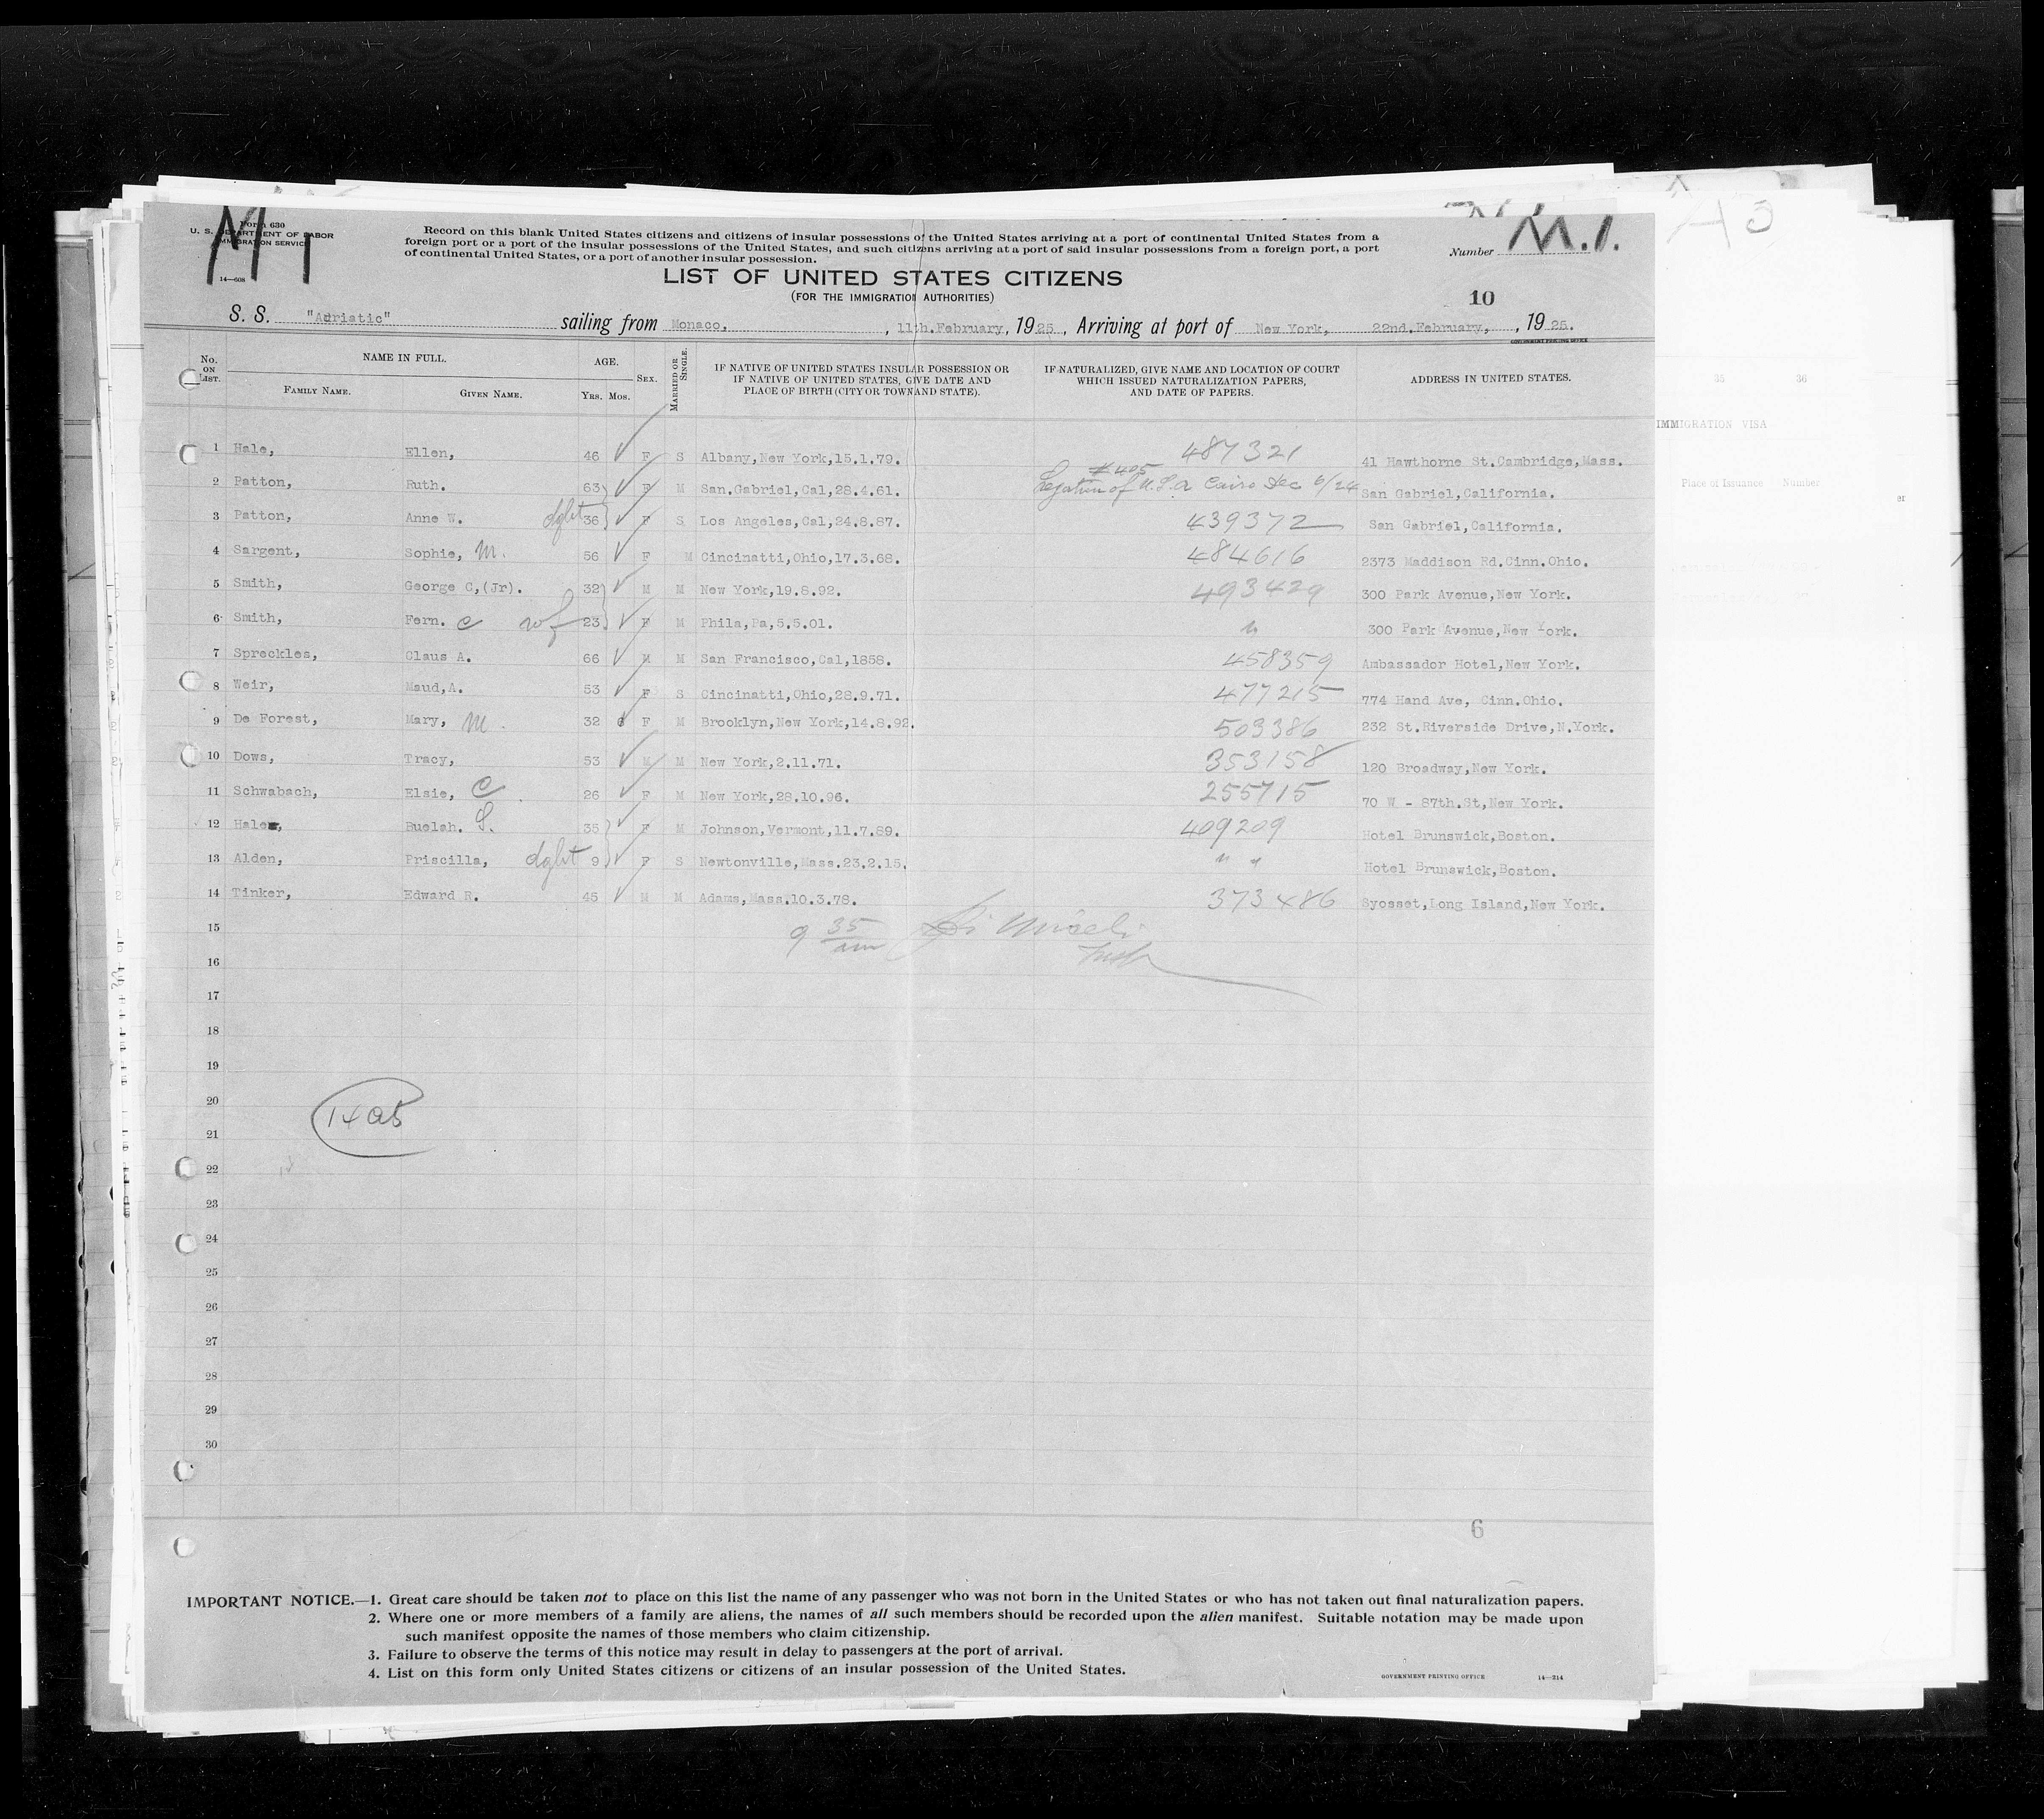 M 1
Form 630
U. S. DEPARTMENT OF LABOR
IMMIGRATION SERVICE
14—608
Record on this blank United States citizens and citizens of insular possessions of the United States arriving at a port of continental United States from a
foreign port or a port of the insular possessions of the United States, and such citizens arriving at a port of said insular possessions from a foreign port, a port
of continental United States, or a port of another insular possession.
Number M.1.
LIST OF UNITED STATES CITIZENS
(FOR THE IMMIGRATION AUTHORITIES)
10
S. S. "Adriatic" sailing from Monaco, , 11th.February, 1925, Arriving at port of New York, 22nd.February, , 1925.
GOVERNMENT PRINTING OFFICE
No. ON LIST. NAME IN FULL. FAMILY NAME. GIVEN NAME. AGE. Yrs. Mos. SEX. MARRIED OR SINGLE. IF NATIVE OF UNITED STATES INSULAR POSSESSION OR IF NATIVE OF UNITED STATES, GIVE DATE AND PLACE OF BIRTH (CITY OR TOWN AND STATE). IF NATURALIZED, GIVE NAME AND LOCATION OF COURT WHICH ISSUED NATURALIZATION PAPERS, AND DATE OF PAPERS. ADDRESS IN UNITED STATES.
1 Hale, Ellen, 46 F S Albany,New York,15.1.79. 487321 41 Hawthorne St.Cambridge,Mass.
2 Patton, Ruth. 63 F M San.Gabriel,Cal,28.4.61. #405 Legation of U.S.a Cairo Dec 6/24 San Gabriel,California.
3 Patton, Anne W. dght 36 F S Los Angeles,Cal,24.8.87. 439372 San Gabriel,California.
4 Sargent, Sophie, M. 56 F M Cincinatti,Ohio,17.3.68. 484616 2373 Maddison Rd.Cinn.Ohio.
5 Smith, George C,(Jr). 32 M M New York,19.8.92. 493429 300 Park Avenue,New York.
6 Smith, Fern. C wf 23 F M Phila,Pa,5.5.01. " 300 Park Avenue,New York.
7 Spreckles, Claus A. 66 M M San Francisco,Cal,1858. 458359 Ambassador Hotel,New York.
8 Weir, Maud,A. 53 F S Cincinatti,Ohio,28.9.71. 477215 774 Hand Ave, Cinn.Ohio.
9 De Forest, Mary, M. 32 6 F M Brooklyn,New York,14.8.92. 503386 232 St.Riverside Drive,N.York.
10 Dows, Tracy, 53 M M New York,2.11.71. 353158 120 Broadway,New York.
11 Schwabach, Elsie, C. 26 F M New York,28.10.96. 255715 70 W - 87th.St,New York.
12 Hale, Buelah. S. 35 F M Johnson,Vermont,11.7.89. 409209 Hotel Brunswick,Boston.
13 Alden, Priscilla, dght 9 F S Newtonville,Mass.23.2.15. " " Hotel Brunswick,Boston.
14 Tinker, Edward R. 45 M M Adams,Mass.10.3.78. 373486 Syosset,Long Island,New York.
15 9 35 am
16
17
18
19
20 14 OB
21
22
23
24
25
26
27
28
29
30
6
IMPORTANT NOTICE.—1. Great care should be taken not to place on this list the name of any passenger who was not born in the United States or who has not taken out final naturalization papers.
2. Where one or more members of a family are aliens, the names of all such members should be recorded upon the alien manifest. Suitable notation may be made upon
such manifest opposite the names of those members who claim citizenship.
3. Failure to observe the terms of this notice may result in delay to passengers at the port of arrival.
4. List on this form only United States citizens or citizens of an insular possession of the United States.
GOVERNMENT PRINTING OFFICE 14—214
35 36
IMMIGRATION VISA
Place of Issuance Number